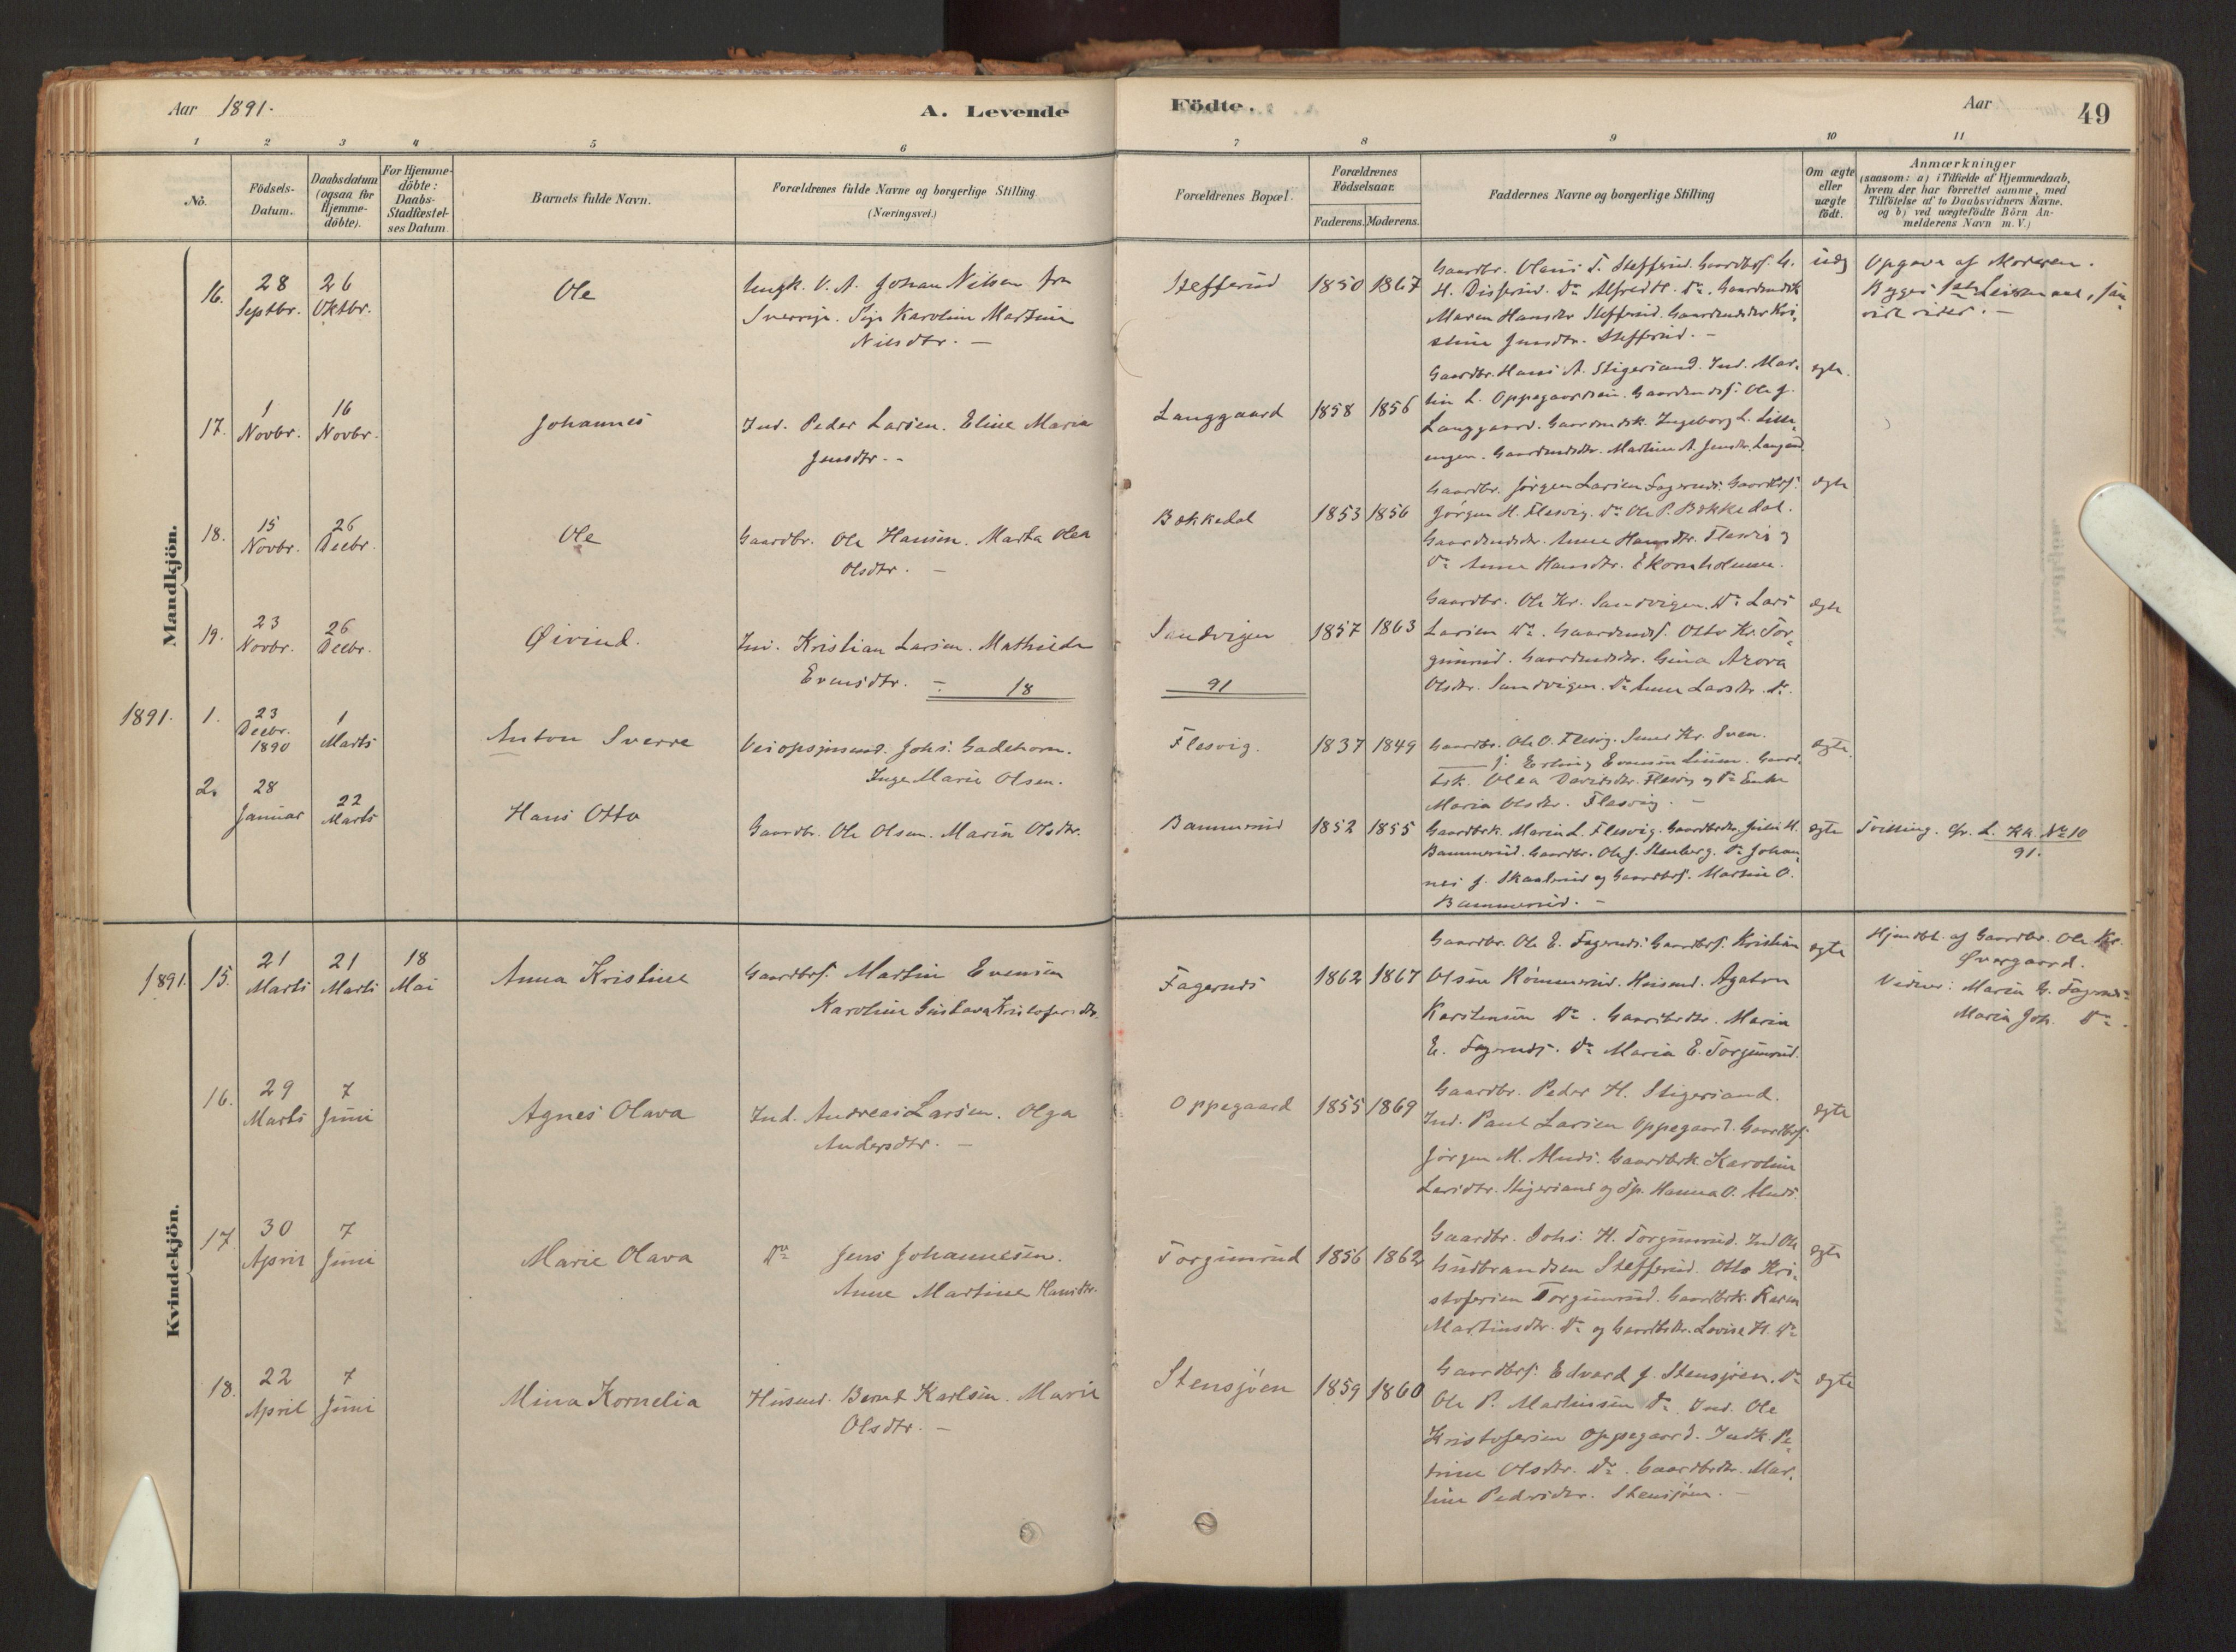 Aar 1891.
A. Levende
Födte.
Aar
49
1 2 3 4 5 6 7 8 9 10 11
No.
Födsels-
Datum.
Daabsdatum
(ogsaa for
Hjemme-
döbte).
For Hjemme-
döbte:
Daabs-
Stadfæstel-
ses Datum.
Barnets fulde Navn.
Forældrenes fulde Navne og borgerlige Stilling
(Næringsvei.)
Forældrenes Bopæl.
Forældrenes
Födselsaar.
Faderens. Moderens.
Faddernes Navne og borgerlige Stilling
Om ægte
eller
uægte
födt.
Anmærkninger
(saasom: a) i Tilfælde af Hjemmedaab,
hvem der har forrettet samme, med
Tilfötelse af to Daabsvidners Navne.
og b) ved uægtefödte Börn An-
melderens Navn m. V.)
Mandkjön.
16.
28
Septbr.
26
Oktbr.
Ole
Ungk. V. A. Johan Nilsen fra
Sverrige. Pige Karoline Martine
Nilsdtr. —
Stefferud
1850 1867
Gaardbr. Olaus T. Stefferud. Gaardbrs. G.
H. Disserud. Do Alfred H. Do. Gaardmdsk
Maren Hansdtr Stefferud. Gaardmdsdtr Kri-
stine Jensdtr. Stefferud. —
uæg
Opgava af Moderen.
17.
1
Novbr.
16
Novbr.
Johannes
Ind. Peder Larsen. Eline Maria
Jensdtr. -
Langgaard
1858 1856
Gaardbr. Hans A. Stigersand. Ind. Mar-
tin L. Oppegaardseie. Gaardmdss. Ole J.
Langgaard. Gaardmdsk. Ingeborg L. Lille-
engen. Gaardmdsdtr. Martine A. Jensdtr. Langaard
egte.
18.
15
Novbr.
26
Decbr.
Ole
Gaardbr. Ole Hansen. Marta Olea
Olsdtr. —
Bækkedal
1853 1856
Gaardbr. Jörgen Larsen Fagernæs. Gaardbrs.
Jörgen H. Flesvig. Do Ole P. Bækkedal.
Gaardmdsdtr. Anne Hansdtr. Flesvig og
Do Anne Hansdtr. Ekornholmen.
ægte
19.
23
Novbr.
26
Decbr.
Øivind.
Ind. Kristian Larsen. Mathilde
Evensdtr. — 18
91
Sandvigen
1857 1863
Gaardbr. Ole Kr. Sandvigen. Do Lars
Larsen Do. Gaardmdss. Otto Kr. Tor-
gunrud. Gaardmdsdtr. Gina Arora
Olsdtr. Sandvigen. Do Anne Larsdtr. Do.
ægte
1891. 1.
23
Decbr.
1890
1
Marts
Anton Sverre
Veiopsynsmd. Johs. Gadehorn.
Inge Marie Olsen.
Flesvig.
1837 1849
Gaardbr. Ole O. Flesvig. Smed Kr. Sven.
Erling Evensen Linien. Gaard-
brk. Olea Davidsdtr. Flesvig og Do Enke
Maria Olsdtr. Flesvig. —
ægte
2.
28
Januar
22
Marts
Hans Otto
Gaardbr. Ole Olsen. Maria Olsdtr.
Bammerud
1852 1855
Gaardbrk. Maria L. Flesvig. Gaardbrdtr. Julie H.
Bammerud. Gaardbr. Ole J. Stenberg. Do Johan-
nes J. Skaalerud og Gaardbrs. Martin O.
Bammerud. —
ægte
Tvilling. Cfr. L. Kk. No 10
91.
Kvindekjön.
1891. 15.
21
Marts
21
Marts
18
Mai
Anna Kristine
Gaardbrs. Martin Evensen
Karoline Gustava Kristofersdtr.
Fagernæs
1862 1867
Gaardbr. Ole E. Fagernæs. Gaardbrs. Kristian
Olsen Römmerud. Husmd. Agaton
Karstensen Do. Gaardbrdtr. Maria
E. Fagernæs. Do Maria E. Torgunrud.
egte
Hjemdbt. af Gaardbr. Ole Kr.
Øvergaard.
Vidner: Maria G. Fagernæs
Maria Joh. Do.
16.
29
Marts
7
Juni
Agnes Olava
Ind. Andreas Larsen. Olga
Andersdtr. —
Oppegaard
1855 1869
Gaardbr. Peder H. Stigersand.
Ind. Paul Larsen Oppegaard. Gaardbrs.
Jörgen M. Alnæs. Gaardbrk. Karoline
Larsdtr. Stigersand og Sp. Hanna O. Alnæs.
ægte
17.
30
April
7
Juni
Marie Olava
Do Jens Johannesen.
Anne Martine Hansdtr.
Torgunrud
1856 1862
Gaardbr. Johs. H. Torgunrud. Ind Ole
Gudbrandsen Stefferud. Otto Kri-
stofersen Torgunrud. Gaardbrk. Karen
Martinsdtr. Do og Gaardbrdtr. Lovise H. Do
ægte
18.
22
April
7
Juni
Mina Kornelia
Husmd. Bernt Karlsen. Marie
Olsdtr. —
Stensjöen
1859 1860
Gaardbrs. Edvard J. Stensjöen. Do
Ole P. Martinsen Do. Ind. Ole
Kristofersen Oppegaard. Indk. Pe-
trine Olsdtr. Do. Gaardbrdtr. Mar-
tine Pedersdtr. Stensjöen. —
ægte